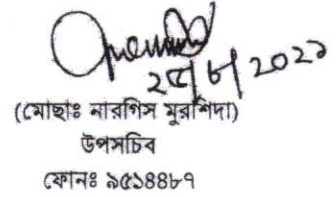 ২৫/৮/২০২১
(মোছাঃ নারগিস মুরশিদা)
উপসচিব
ফোনঃ ৯৫১৪৪৮৭